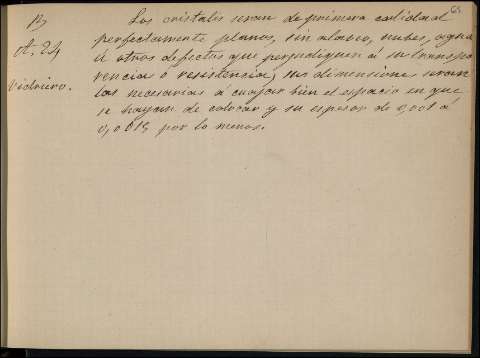 63
B)
A. 24
Vidriero.
Los cristales seran de primera calidad
perfectamente planos, sin alabeo, nubes, aguas
ú otros defectos que perjudiquen á su transpa
rencia ó resistencia, sus dimensiones seran
las necesarias á cuajar bien el espacio en que
se hayan de colocar y su espesor de 0,001 á
0,0015 por lo menos.